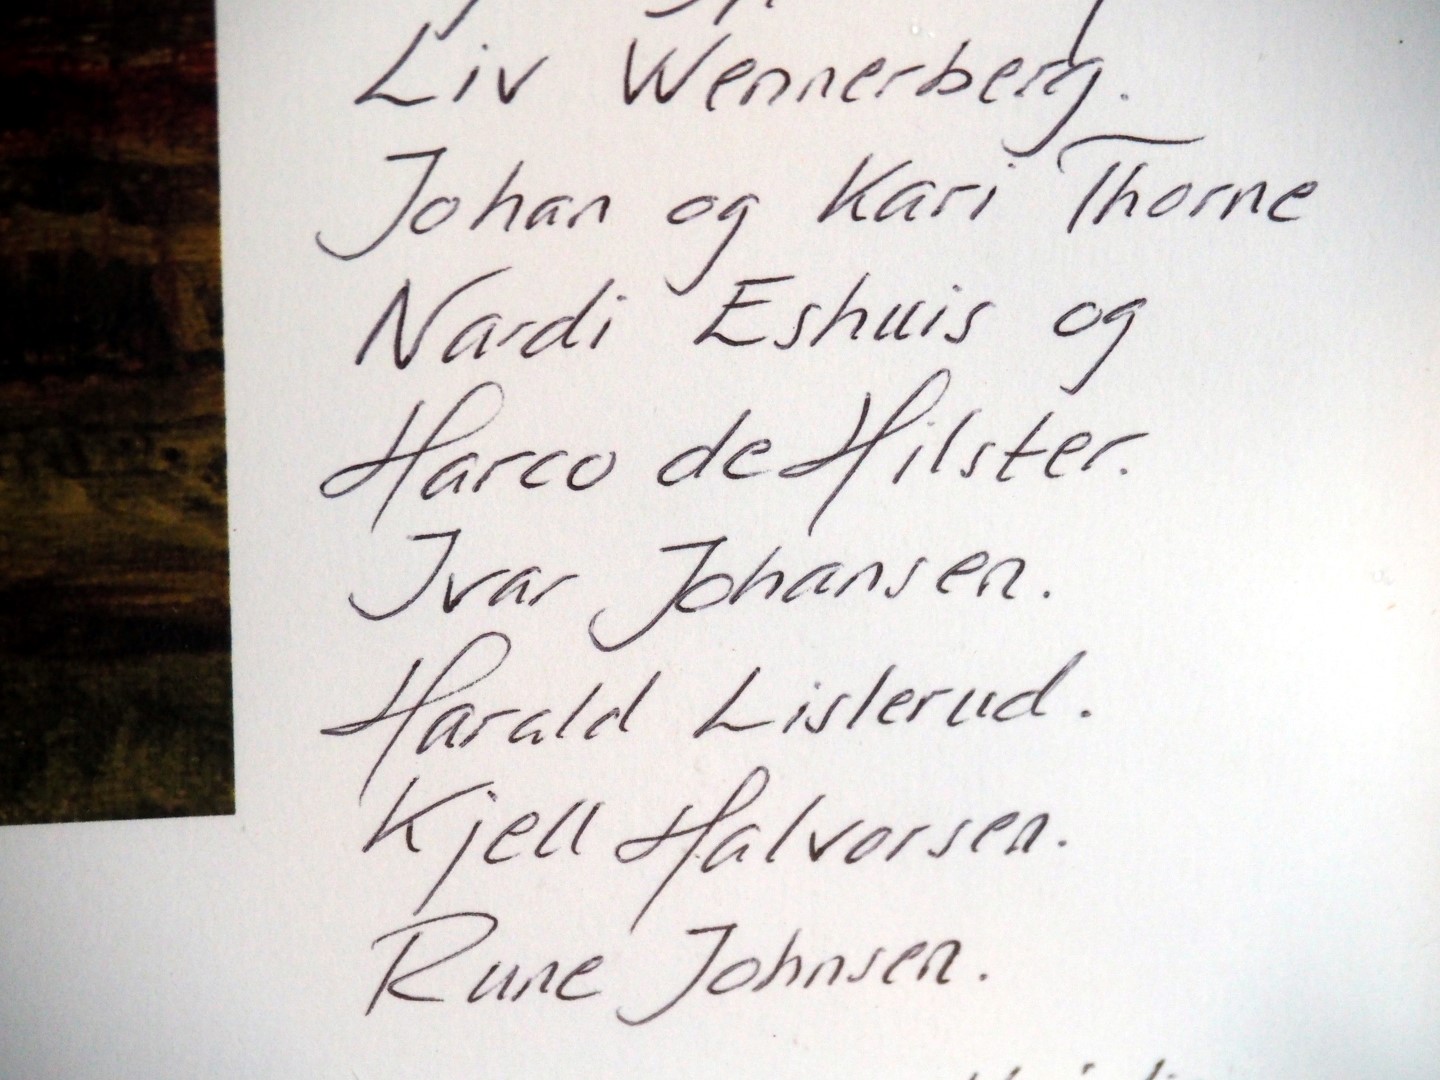 Liv Wennerberg.
Johan og Kari Thorne
Nardi Eshuis og
Harco de Hilster.
Ivar Johansen.
Harald Lislerud.
Kjell Halvorsen.
Rune Johnsen.